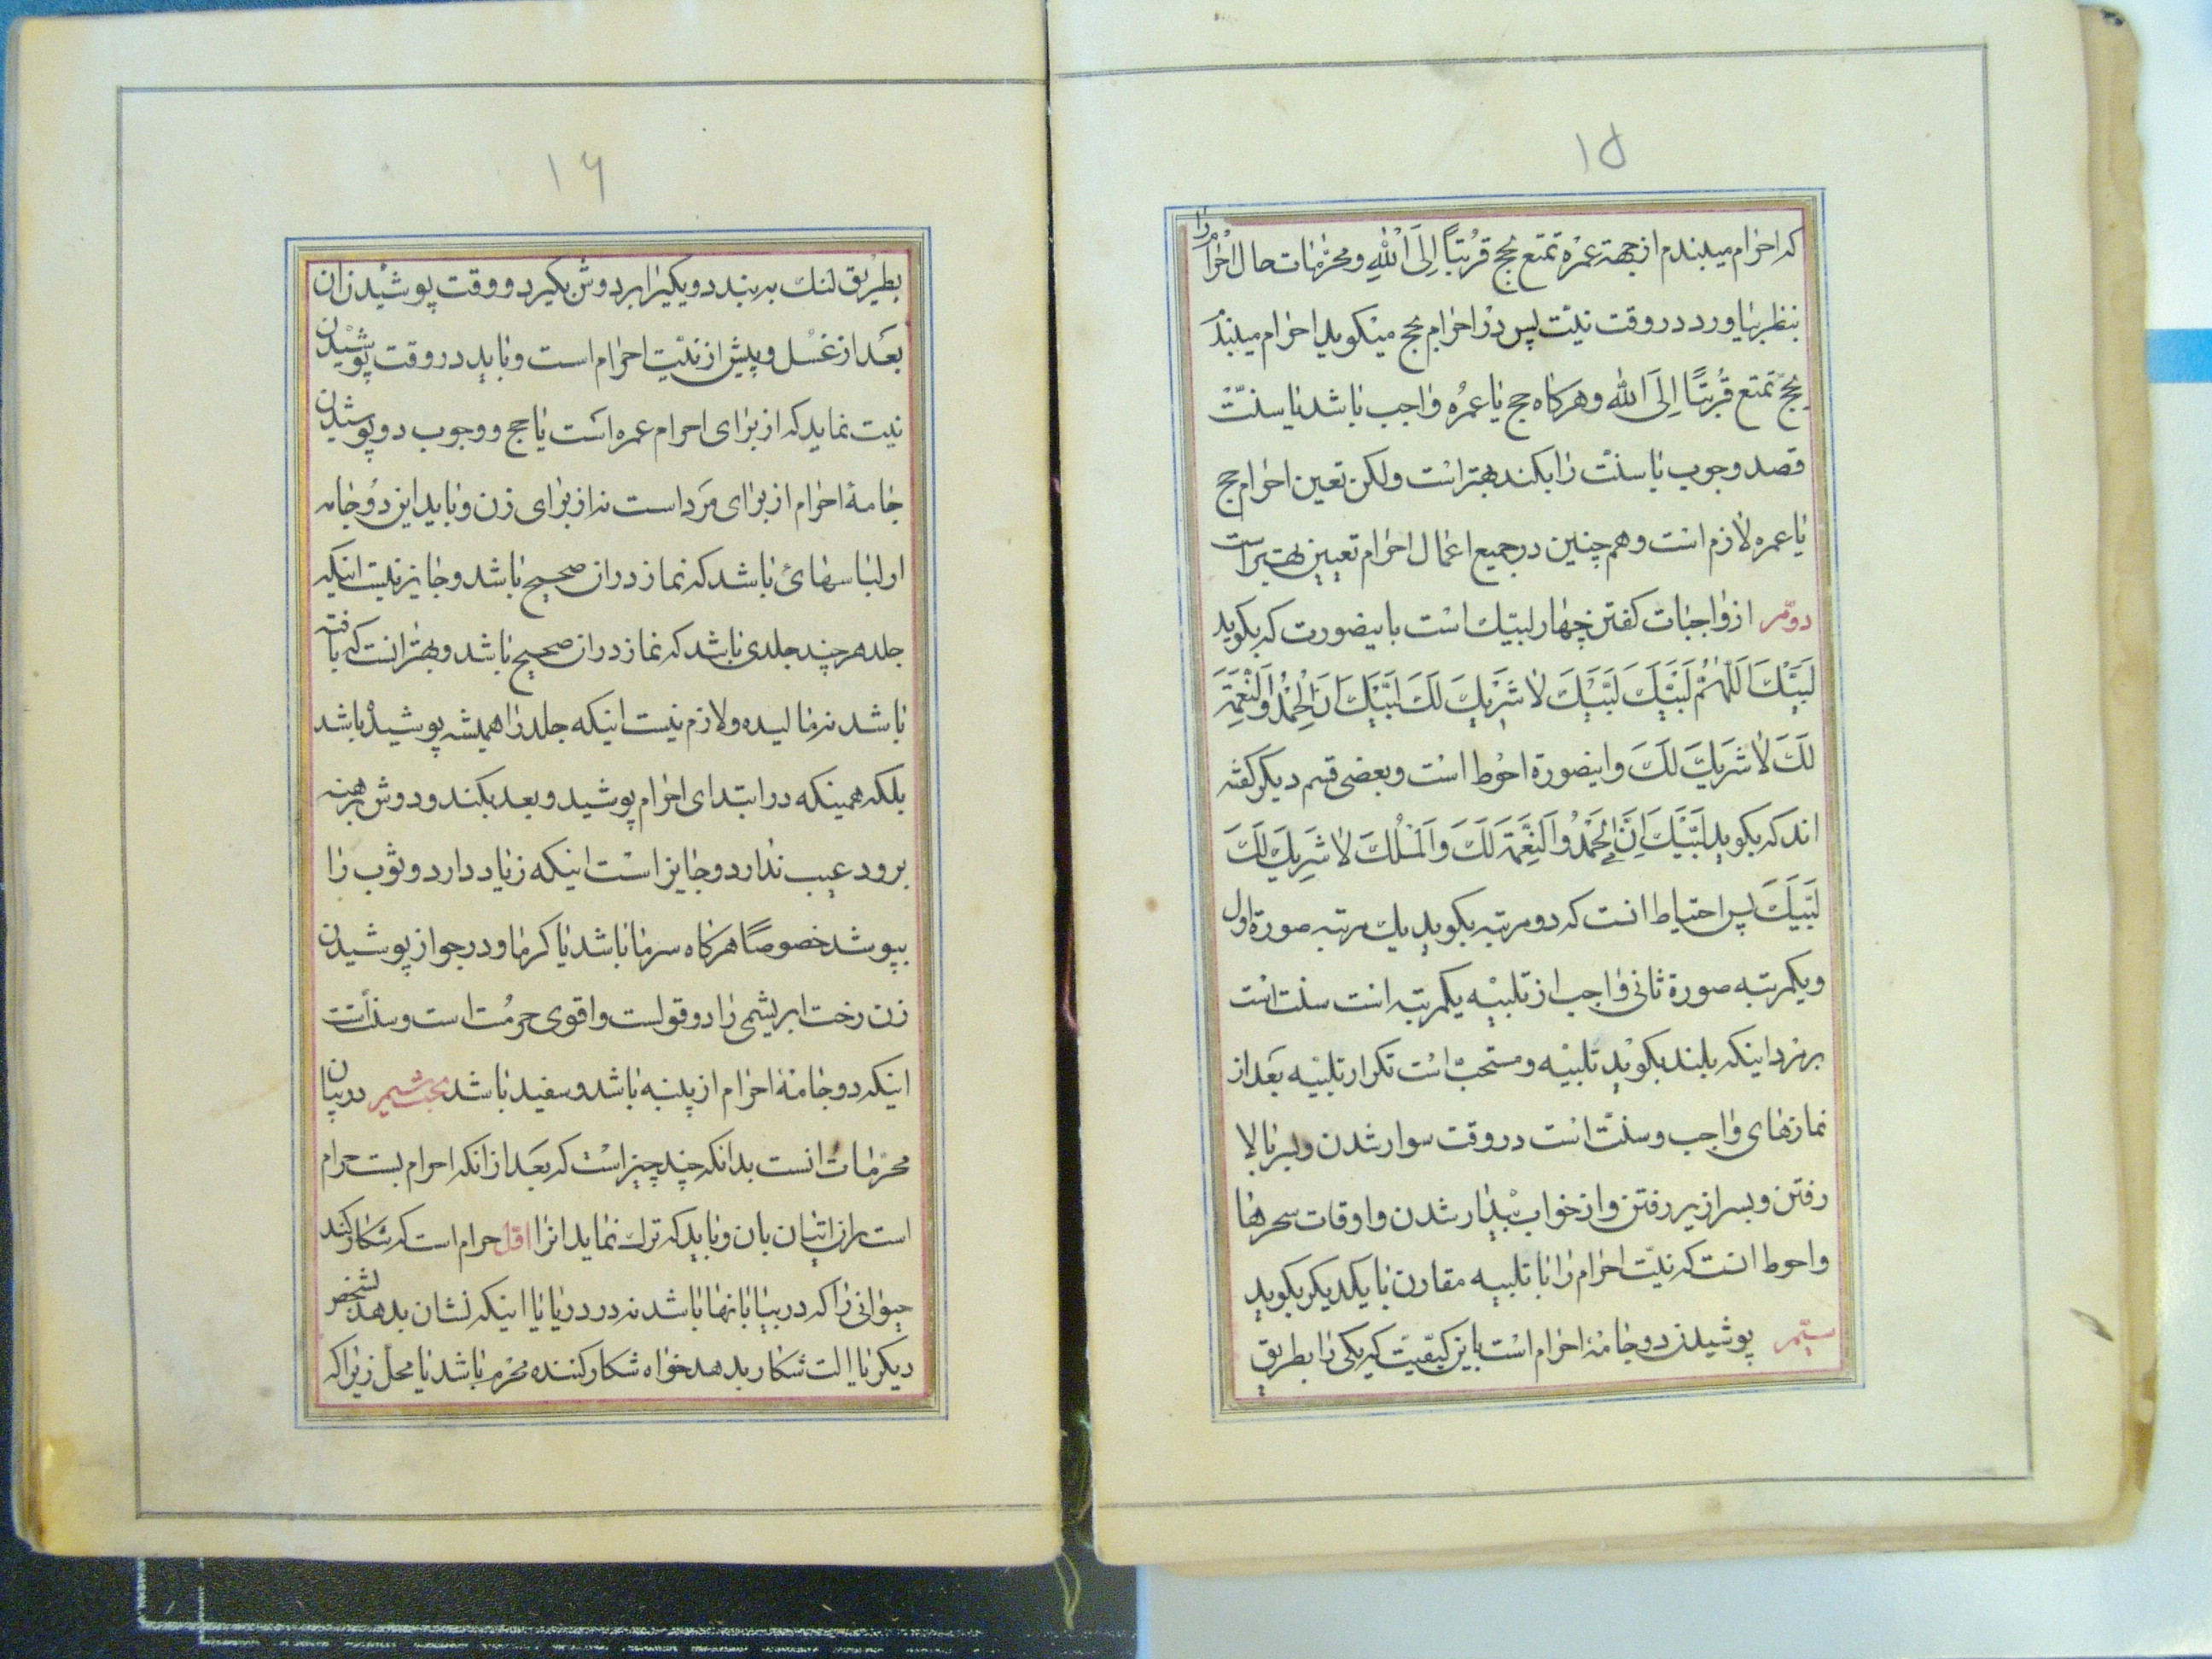 ١٥
که احرام میبندم از جهة عمره تمتع بحج قربتاً الی الله و محرّمات حال احرام را
بنظر بیاورد در وقت نیّت پس در احرام بحج میکوید احرام میبندم
بحجّ تمتع قُربتاً اِلَی الله و هرکاه حج یا عمره واجب باشد یا سنّت
قصد وجوب یا سنّت را بکند بهتر است ولکن تعین احرام حج
یا عمره لازم است و هم چنین در جمیع اعمال احرام تعیین بهتر است
دویّم از واجبات کفتن چهار لبیّک است باینصورت که بکوید
لَبَیّْکَ اَللّهُمَّ لَبَیّْکَ لَبَّیْکَ لا شَریکَ لَکَ لَبَّیْکَ اِنَّ الْحَمْدَ وَ النِّعْمَةَ
لَکَ لا شَریکَ لَکَ و اینصورة احوط است و بعضی قسم دیکر کفته
اند که بکوید لَبَّیْکَ اِنَّ الْحَمْدَ وَ النِّعْمَةَ لَکَ وَ الْمُلْکَ لا شَرِیکَ لَکَ
لَبَّیکَ پس احتیاط انست که دو مرتبه بکوید یک مرتبه صورة اول
و یکمرتبه صورة ثانی واجب از تلبیه یکمرتبه است سنت است
بر مرد اینکه بلند بکوید تلبیه و مستحبّ است تکرار تلبیه بعد از
نمازهای واجب و سنّت است در وقت سوار شدن و بسر بالا
رفتن و بسرازیر رفتن و از خواب بیدار شدن و اوقات سحرها
و احوط انست که نیّت احرام را با تلبیه مقارن با یکدیکر بکوید
سیّم پوشیدن دو جامهٔ احرام است باین کیفّیت که یکی را بطریق
١٦
بطریق لنک به بندد و یکیرا بر دوش بکیرد و وقت پوشیدن ان
بعد از غسل و پیش از نیّت احرام است و باید در وقت پوشیدن
نیت نماید که از برای احرام عمره است یا حج و وجوب دو پوشیدن
جامهٔ احرام از برای مرد است نه از برای زن و باید این دو جامه
او لباسهائ باشد که نماز در ان صحیح باشد و جایز نیست اینکه
جلد هر چند جلدی باشد که نماز در ان صحیح باشد و بهتر انست که بافته
باشد نه مالیده و لازم نیست اینکه جلد را همیشه پوشیده باشد
بلکه همینکه در ابتدای احرام پوشید و بعد بکند و دوش برهنه
برود عیب ندارد و جایز است اینکه زیاد دارد و ثوب را
بپوشد خصوصاً هرکاه سرما باشد یا کرما و در جواز پوشیدن
زن رخت ابریشمی را دو قولست و اقوی حرمُت است و سنّت است
اینکه دو جامهٔ احرام از پنبه باشد و سفید باشد مبحث ششم در بیان
محرّمات انست بدانکه چند چیز است که بعد از انکه احرام بست حرام
است بران اتیان بان و باید که ترک نماید انرا اوّل حرام است که شکار کند
حیوانی را که در بیابانها باشد نه در دریا یا اینکه نشان بدهد لشخص
دیکر یا الت شکار بدهد خواه شکار کننده محرم باشد یا محلّ زیرا که